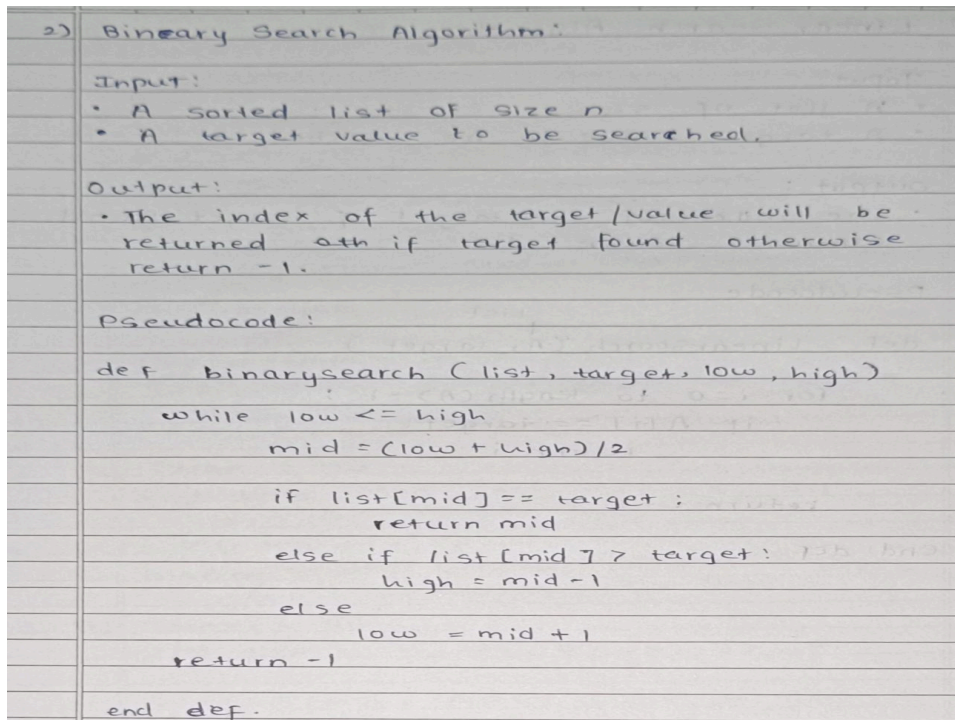 2) Bineary Search Algorithm:
Input:
• A sorted list of size n
• A target value to be searched.
Output:
• The index of the target/value will be
returned oth if target found otherwise
return -1.
Pseudocode:
def binarysearch (list, target, low, high)
while low <= high
mid = (low + high)/2
if list[mid] == target :
return mid
else if list [mid] > target:
high = mid-1
else
low = mid + 1
return -1
end def.